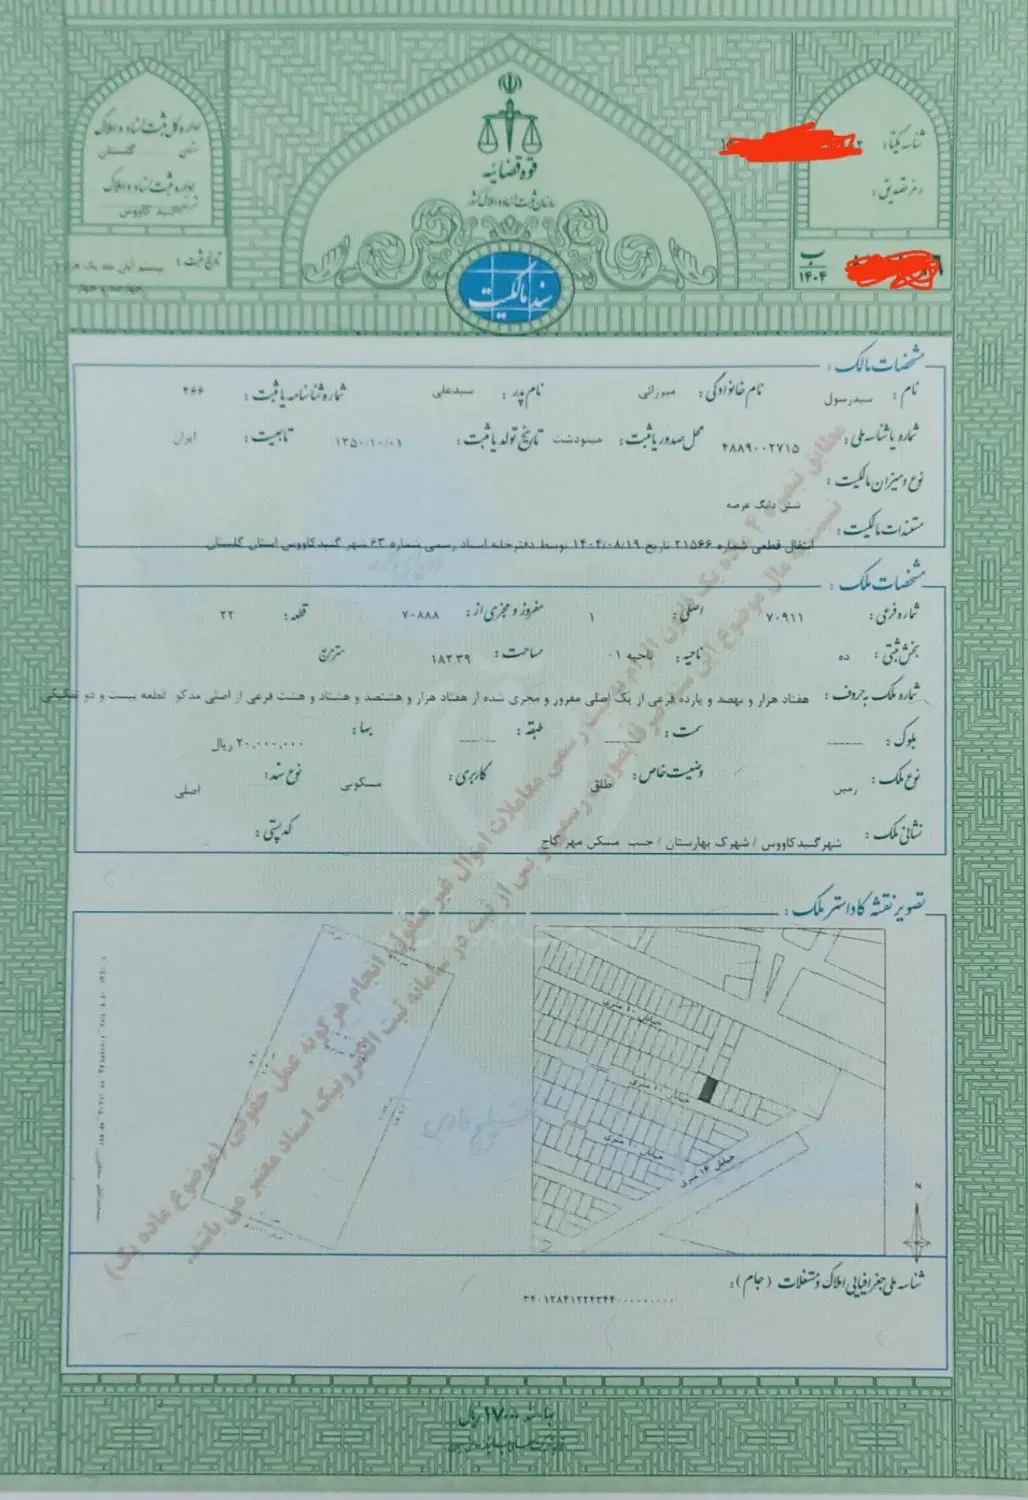 قوه قضائیه
سازمان ثبت اسناد و املاک کشور
سند مالکیت
اداره کل ثبت اسناد و املاک
استان گلستان
اداره ثبت اسناد و املاک
گنبد کاووس
تاریخ ثبت :
شناسه یکتا :
رمز تصدیق :
ب
۱۴۰۴
مشخصات مالک :
نام : سیدرسول نام خانوادگی : میرزائی نام پدر : سیدعلی شماره شناسنامه یا ثبت : ۴۶۶
شماره یا شناسه ملی : ۴۸۸۹۰۰۲۷۱۵ محل صدور یا ثبت : مینودشت تاریخ تولد یا ثبت : ۱۳۵۰/۱۰/۰۱ تابعیت : ایران
نوع و میزان مالکیت :
شش دانگ عرصه
مستندات مالکیت :
انتقال قطعی شماره ۲۱۵۶۶ تاریخ ۱۴۰۴/۰۸/۱۹ توسط دفترخانه اسناد رسمی شماره ۶۳ شهر گنبدکاووس استان گلستان
مشخصات ملک :
شماره فرعی : ۷۰۹۱۱ اصلی : ۱ مفروز و مجزی از : ۷۰۸۸۸ قطعه : ۲۲
بخش ثبتی : ده ناحیه : ناحیه ۰۱ مساحت : متر مربع
شماره ملک به حروف : هفتاد هزار و نهصد و یازده فرعی از یک اصلی مفروز و مجزی شده از هفتاد هزار و هشتصد و هشتاد و هشت فرعی از اصلی مذکور قطعه بیست و دو تفکیکی
بلوک : ------ سمت : ------ طبقه : ------ بها : ۲۰,۰۰۰,۰۰۰ ریال
نوع ملک : زمین وضعیت خاص : طلق کاربری : مسکونی نوع سند : اصلی
نشانی ملک : شهرگنبدکاووس / شهرک بهارستان / جنب مسکن مهر کاج کدپستی :
تصویر نقشه کاداستر ملک :
خیابان ۱۰ متری
خیابان
خیابان متری
خیابان ۱۴ متری
N
شناسه ملی جغرافیایی املاک و مستغلات (جام) :
مطابق تبصره ۲ ماده یک قانون الزام به ثبت رسمی معاملات اموال غیر منقول، انجام هرگونه عمل حقوقی (موضوع ماده یک)
نسبت به مال موضوع این سند صرفا بصورت رسمی و پس از ثبت در سامانه ثبت الکترونیک اسناد معتبر می باشد.